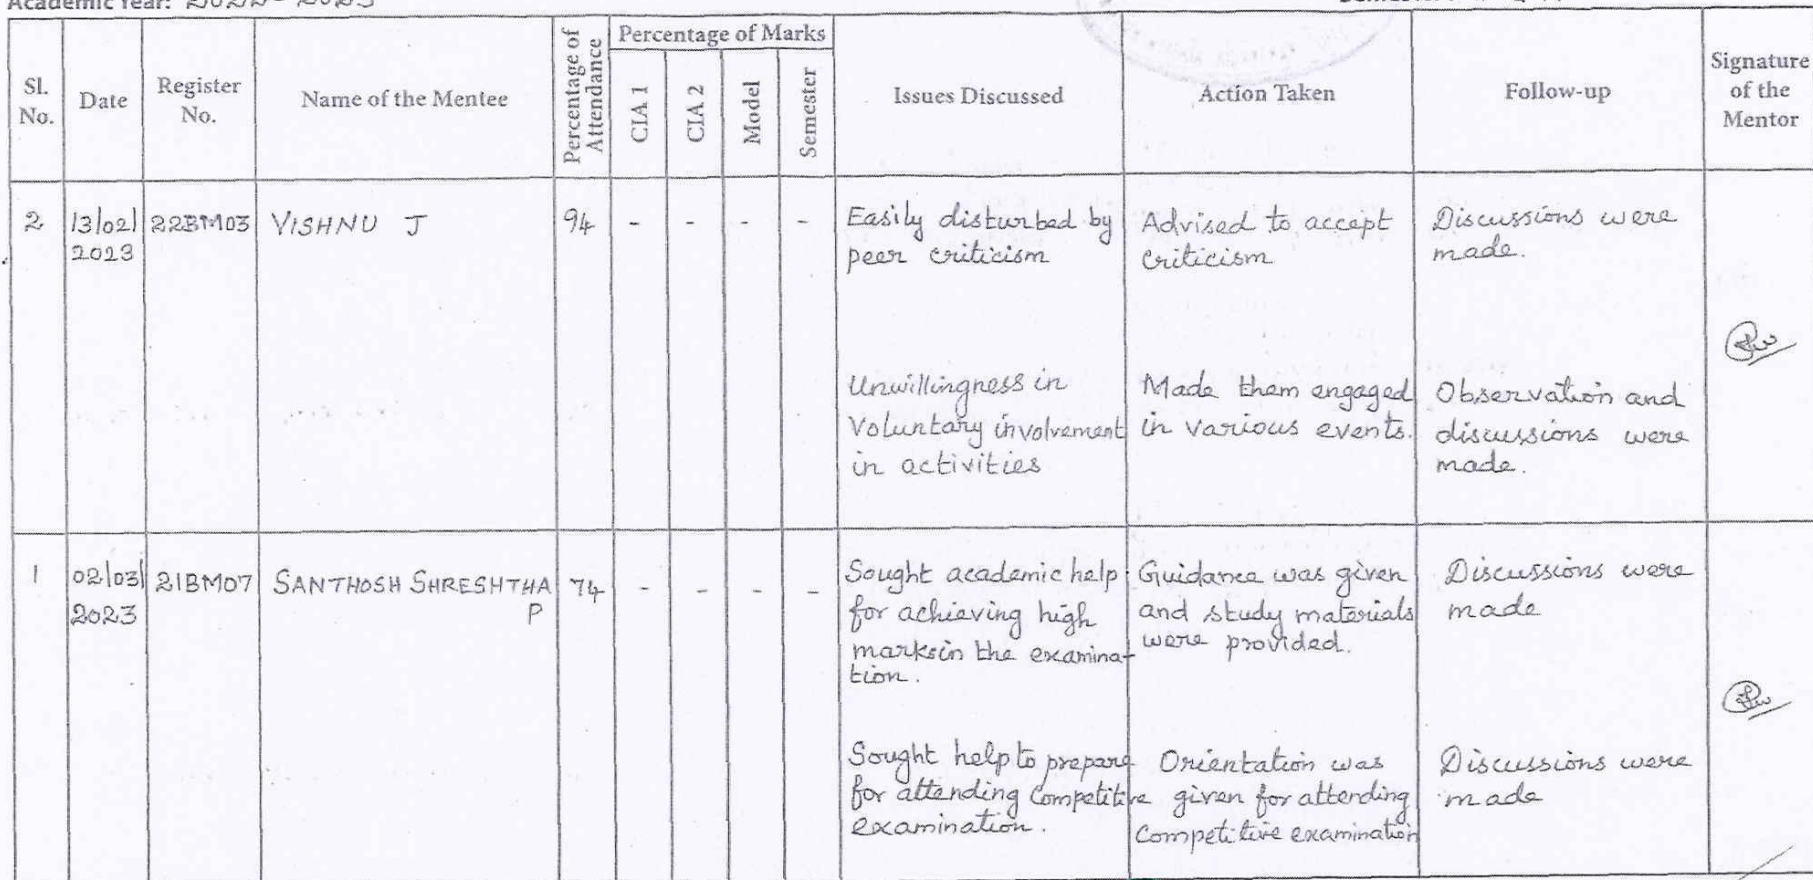 Academic Year: 2022 - 2023
Percentage of Marks
Sl. No.
Date
Register No.
Name of the Mentee
Percentage of Attendance
CIA 1
CIA 2
Model
Semester
Issues Discussed
Action Taken
Follow-up
Signature of the Mentor
2
13/02/
2023
22BM03
VISHNU J
94
-
-
-
-
Easily disturbed by
peer criticism
Advised to accept
criticism
Discussions were
made.
Unwillingness in
Voluntary involvement
in activities
Made them engaged
in various events.
Observation and
discussions were
made.
1
02/03/
2023
21BM07
SANTHOSH SHRESHTHA
P
74
-
-
-
-
Sought academic help
for achieving high
marks in the examina-
tion.
Guidance was given
and study materials
were provided.
Discussions were
made
Sought help to prepare
for attending Competitive
examination.
Orientation was
given for attending
Competitive examination
Discussions were
made